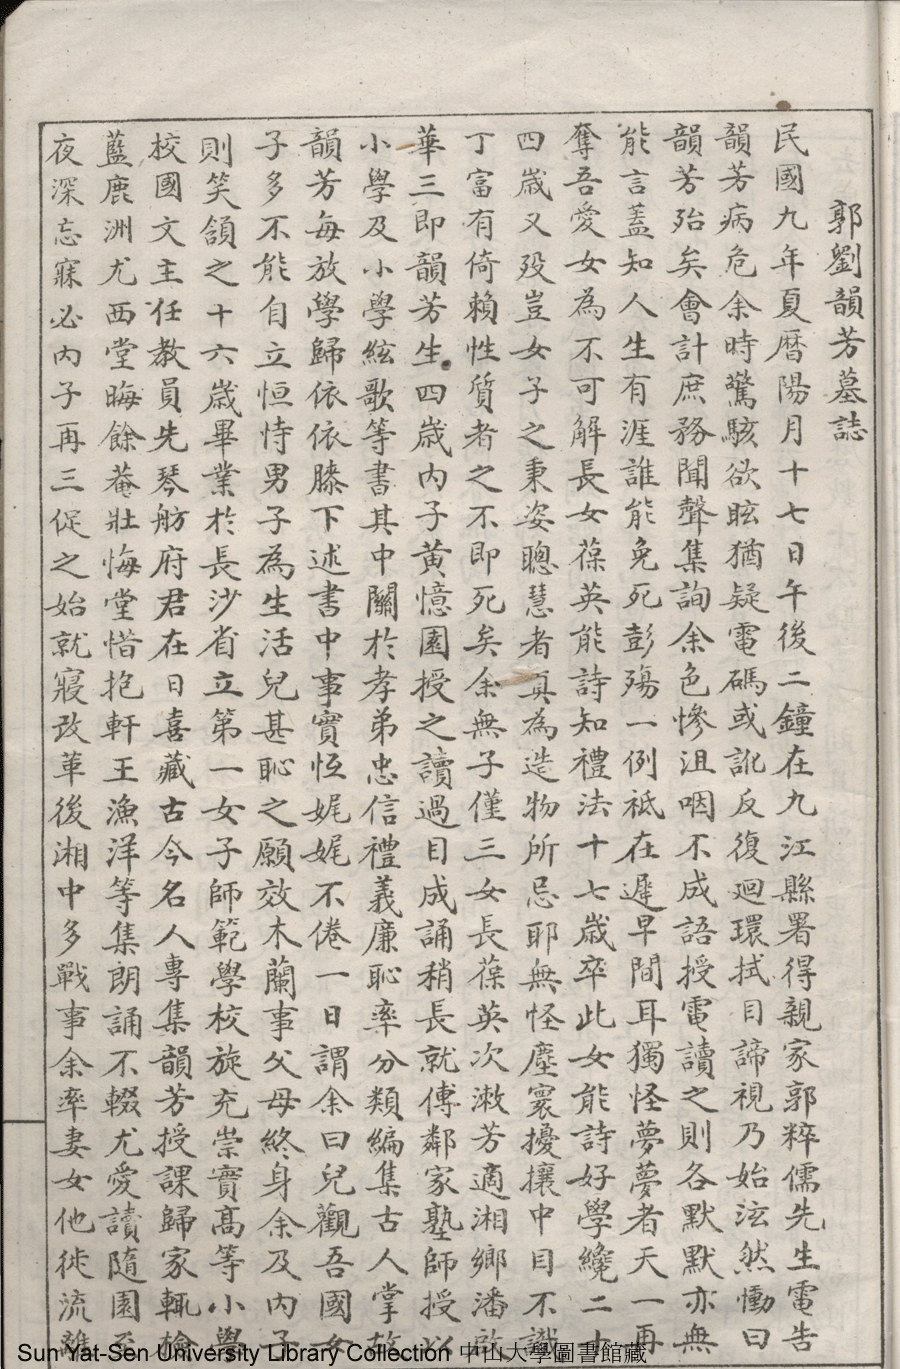 郭劉韻芳墓誌
民國九年夏曆陽月十七日午後二鐘在九江縣署得親家郭粹儒先生電告
韻芳病危余時驚駭欲眩猶疑電碼或訛反復迴環拭目諦視乃始泫然慟曰
韻芳殆矣會計庶務聞聲集詢余色慘沮咽不成語授電讀之則各默默亦無
能言蓋知人生有涯誰能免死彭殤一例祗在遲早間耳獨怪夢夢者天一再
奪吾愛女為不可解長女葆英能詩知禮法十七歲卒此女能詩好學纔二十
四歲又歿豈女子之秉姿聰慧者真為造物所忌耶無怪塵寰擾攘中目不識
丁富有倚賴性質者之不即死矣余無子僅三女長葆英次漱芳適湘鄉潘啟
華三即韻芳生四歲內子黃憶園授之讀過目成誦稍長就傅鄰家塾師授以
小學及小學絃歌等書其中關於孝弟忠信禮義廉恥率分類編集古人掌故
韻芳每放學歸依依膝下述書中事實恆娓娓不倦一日謂余曰兒觀吾國女
子多不能自立恒恃男子為生活兒甚恥之願效木蘭事父母終身余及內子
則笑頷之十六歲畢業於長沙省立第一女子師範學校旋充崇實高等小學
校國文主任教員先琴舫府君在日喜藏古今名人專集韻芳授課歸家輒檢
藍鹿洲尤西堂晦餘菴壯悔堂惜抱軒王漁洋等集朗誦不輟尤愛讀隨園至
夜深忘寐必內子再三促之始就寢改革後湘中多戰事余率妻女他徙流離
Sun Yat-Sen University Library Collection 中山大學圖書館藏